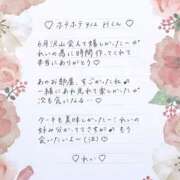 ♡ ホテホテTEL Hくん ♡
6月沢山会えて嬉しかったー♡
れいの為に時間作ってくれて
本当にありがとう♡
あのお部屋、すごかったね
一緒にあれ見れて楽しかった
次も会いたいな…♡
ケーキも美味しかったーれいの
好み分かっててさすが もう
会いたいよー(泣)♡
♡ れい ♡